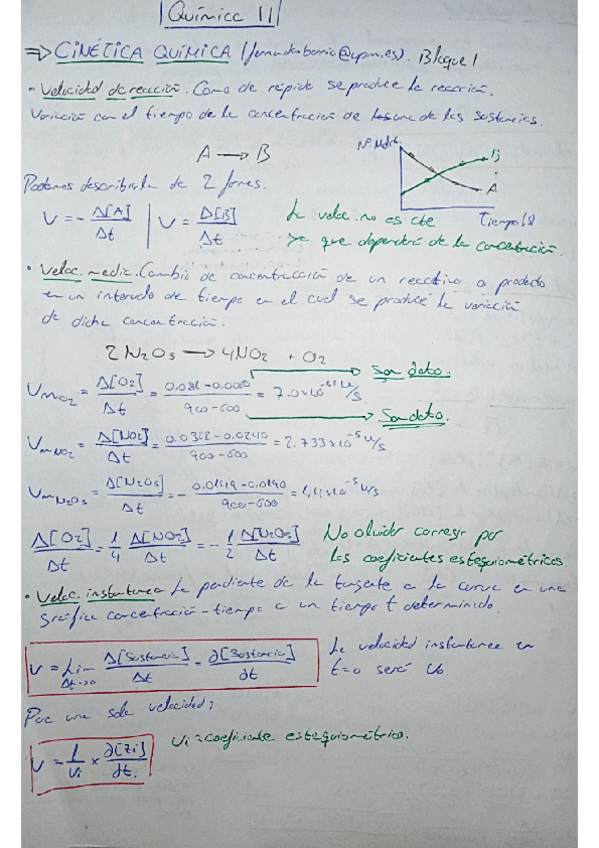 Química II
⇒ CINÉTICA QUÍMICA (fernando.barrio@upm.es). Bloque I
- Velocidad de reacción. Como de rápido se produce la reacción.
Variación con el tiempo de la concentración de una de las sustancias.
A → B
Nº Moléc.
B
A
Tiempo (s)
Podemos describirla de 2 formas.
V = - Δ[A]/Δt | V = Δ[B]/Δt
La veloc. no es cte
ya que dependerá de la concentración.
• Veloc. media. Cambio de concentración de un reactivo o producto
en un intervalo de tiempo en el cual se produce la variación
de dicha concentración.
2N2O5 → 4NO2 + O2
Son dato.
VmO2 = Δ[O2]/Δt = /900-600 = 7.0x10^-6 M/s
Son dato.
VmNO2 = Δ[NO2]/Δt = 0.0322-0.0240/900-600 = 2.733x10^-5 M/s
VmN2O5 = Δ[N2O5]/Δt = - /900-600 = 1,4x10^-5 M/s
Δ[O2]/Δt = 1/4 Δ[NO2]/Δt = - 1/2 Δ[N2O5]/Δt
No olvidar corregir por
los coeficientes estequiométricos
• Veloc. instantanea La pendiente de la tangente a la curva en una
gráfica concentración-tiempo a un tiempo t determinado.
V = Lim Δt→0 Δ[Sustancia]/Δt = ∂[Sustancia]/∂t
La velocidad instantanea en
t=0 será V0
Para una sola velocidad;
V = 1/Vi x ∂[Zi]/∂t.
Vi = coeficiente estequiométrico.